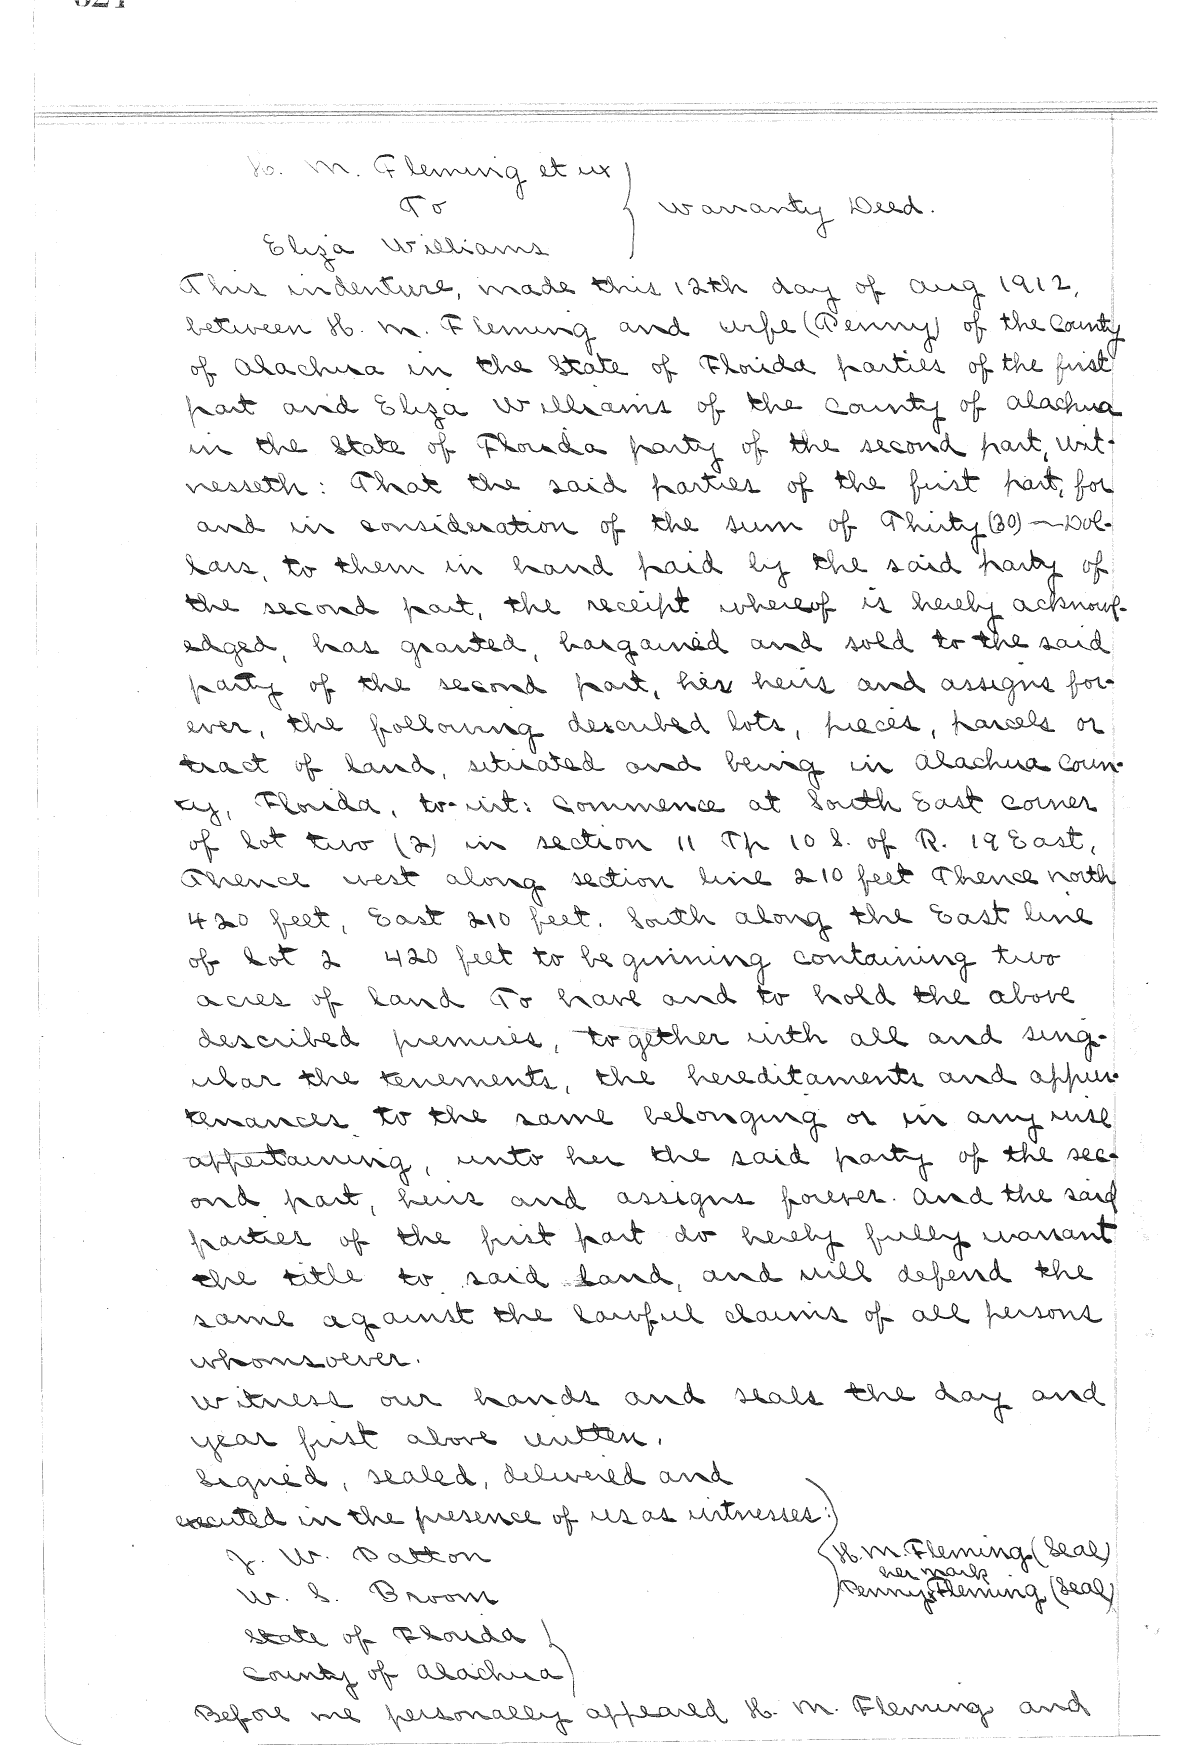 H. M. Fleming et ux
To
Warranty Deed.
Eliza Williams
This indenture, made this 12th day of Aug 1912,
between H. M. Fleming and wife (Penny) of the County
of Alachua in the State of Florida parties of the first
part and Eliza Williams of the County of Alachua
in the State of Florida party of the second part, wit-
nesseth: That the said parties of the first part, for
and in consideration of the sum of Thirty (30) — Dol-
lars, to them in hand paid by the said party of
the second part, the receipt whereof is hereby acknowl-
edged, has granted, bargained and sold to the said
party of the second part, her heirs and assigns for-
ever, the following described lots, pieces, parcels or
tract of land, situated and being in Alachua Coun-
ty, Florida, to-wit: Commence at South East corner
of Lot two (2) in section 11 Tp 10 S. of R. 19 East,
Thence west along section line 210 feet Thence north
420 feet, East 210 feet. South along the East line
of Lot 2 420 feet to beginning containing two
acres of land To have and to hold the above
described premises, together with all and sing-
ular the tenements, the hereditaments and appur-
tenances to the same belonging or in any wise
appertaining, unto her the said party of the sec-
ond part, heirs and assigns forever. And the said
parties of the first part do hereby fully warrant
the title to said land, and will defend the
same against the lawful claims of all persons
whomsoever.
Witness our hands and seals the day and
year first above written.
Signed, sealed, delivered and
executed in the presence of us as witnesses:
J. W. Patton
H. M. Fleming (Seal)
her mark
W. S. Broom
Penny x Fleming (Seal)
State of Florida
County of Alachua
Before me personally appeared H. M. Fleming and